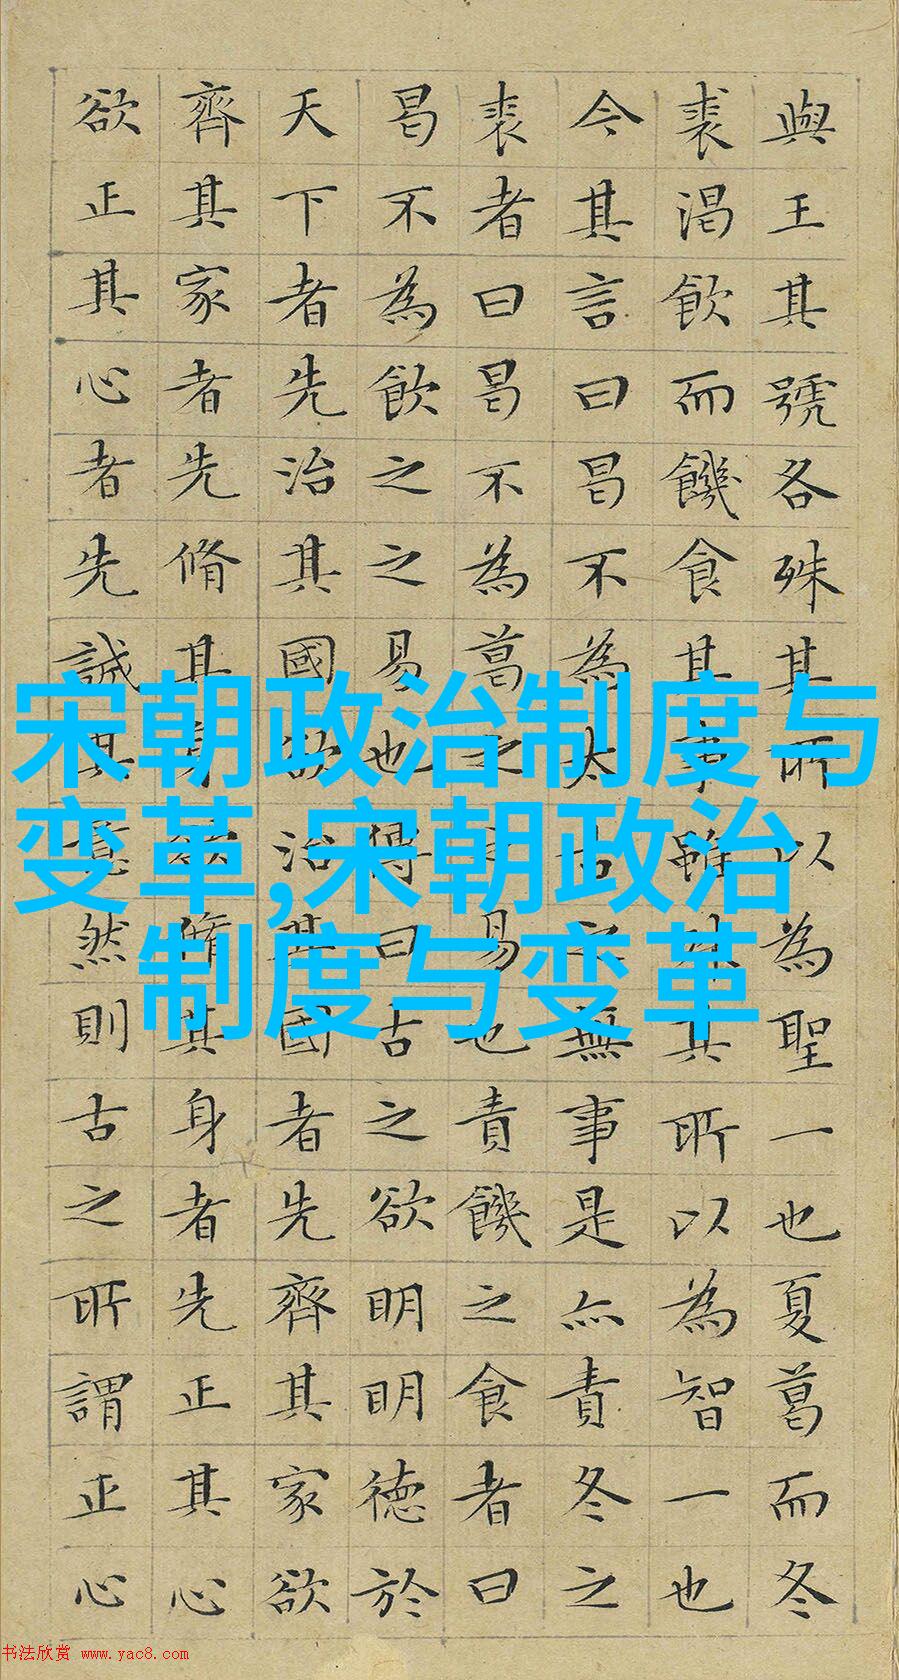 與王其號各殊其所以為聖一也夏葛而冬
裘渴飲而饑食其事雖殊其所以為智一也
今其言曰曷不為太古之無事是亦責冬之
裘者曰曷不為葛之之易也責饑之食者曰
曷不為飲之之易也傳曰古之欲明明德於
天下者先治其國欲治其國者先齊其家欲
齊其家者先脩其身欲脩其身者先正其心
欲正其心者先誠其意然則古之所謂正心
宋朝政治制度与
变革,宋朝政治
制度与变革
书法欣赏 www.yac8.com